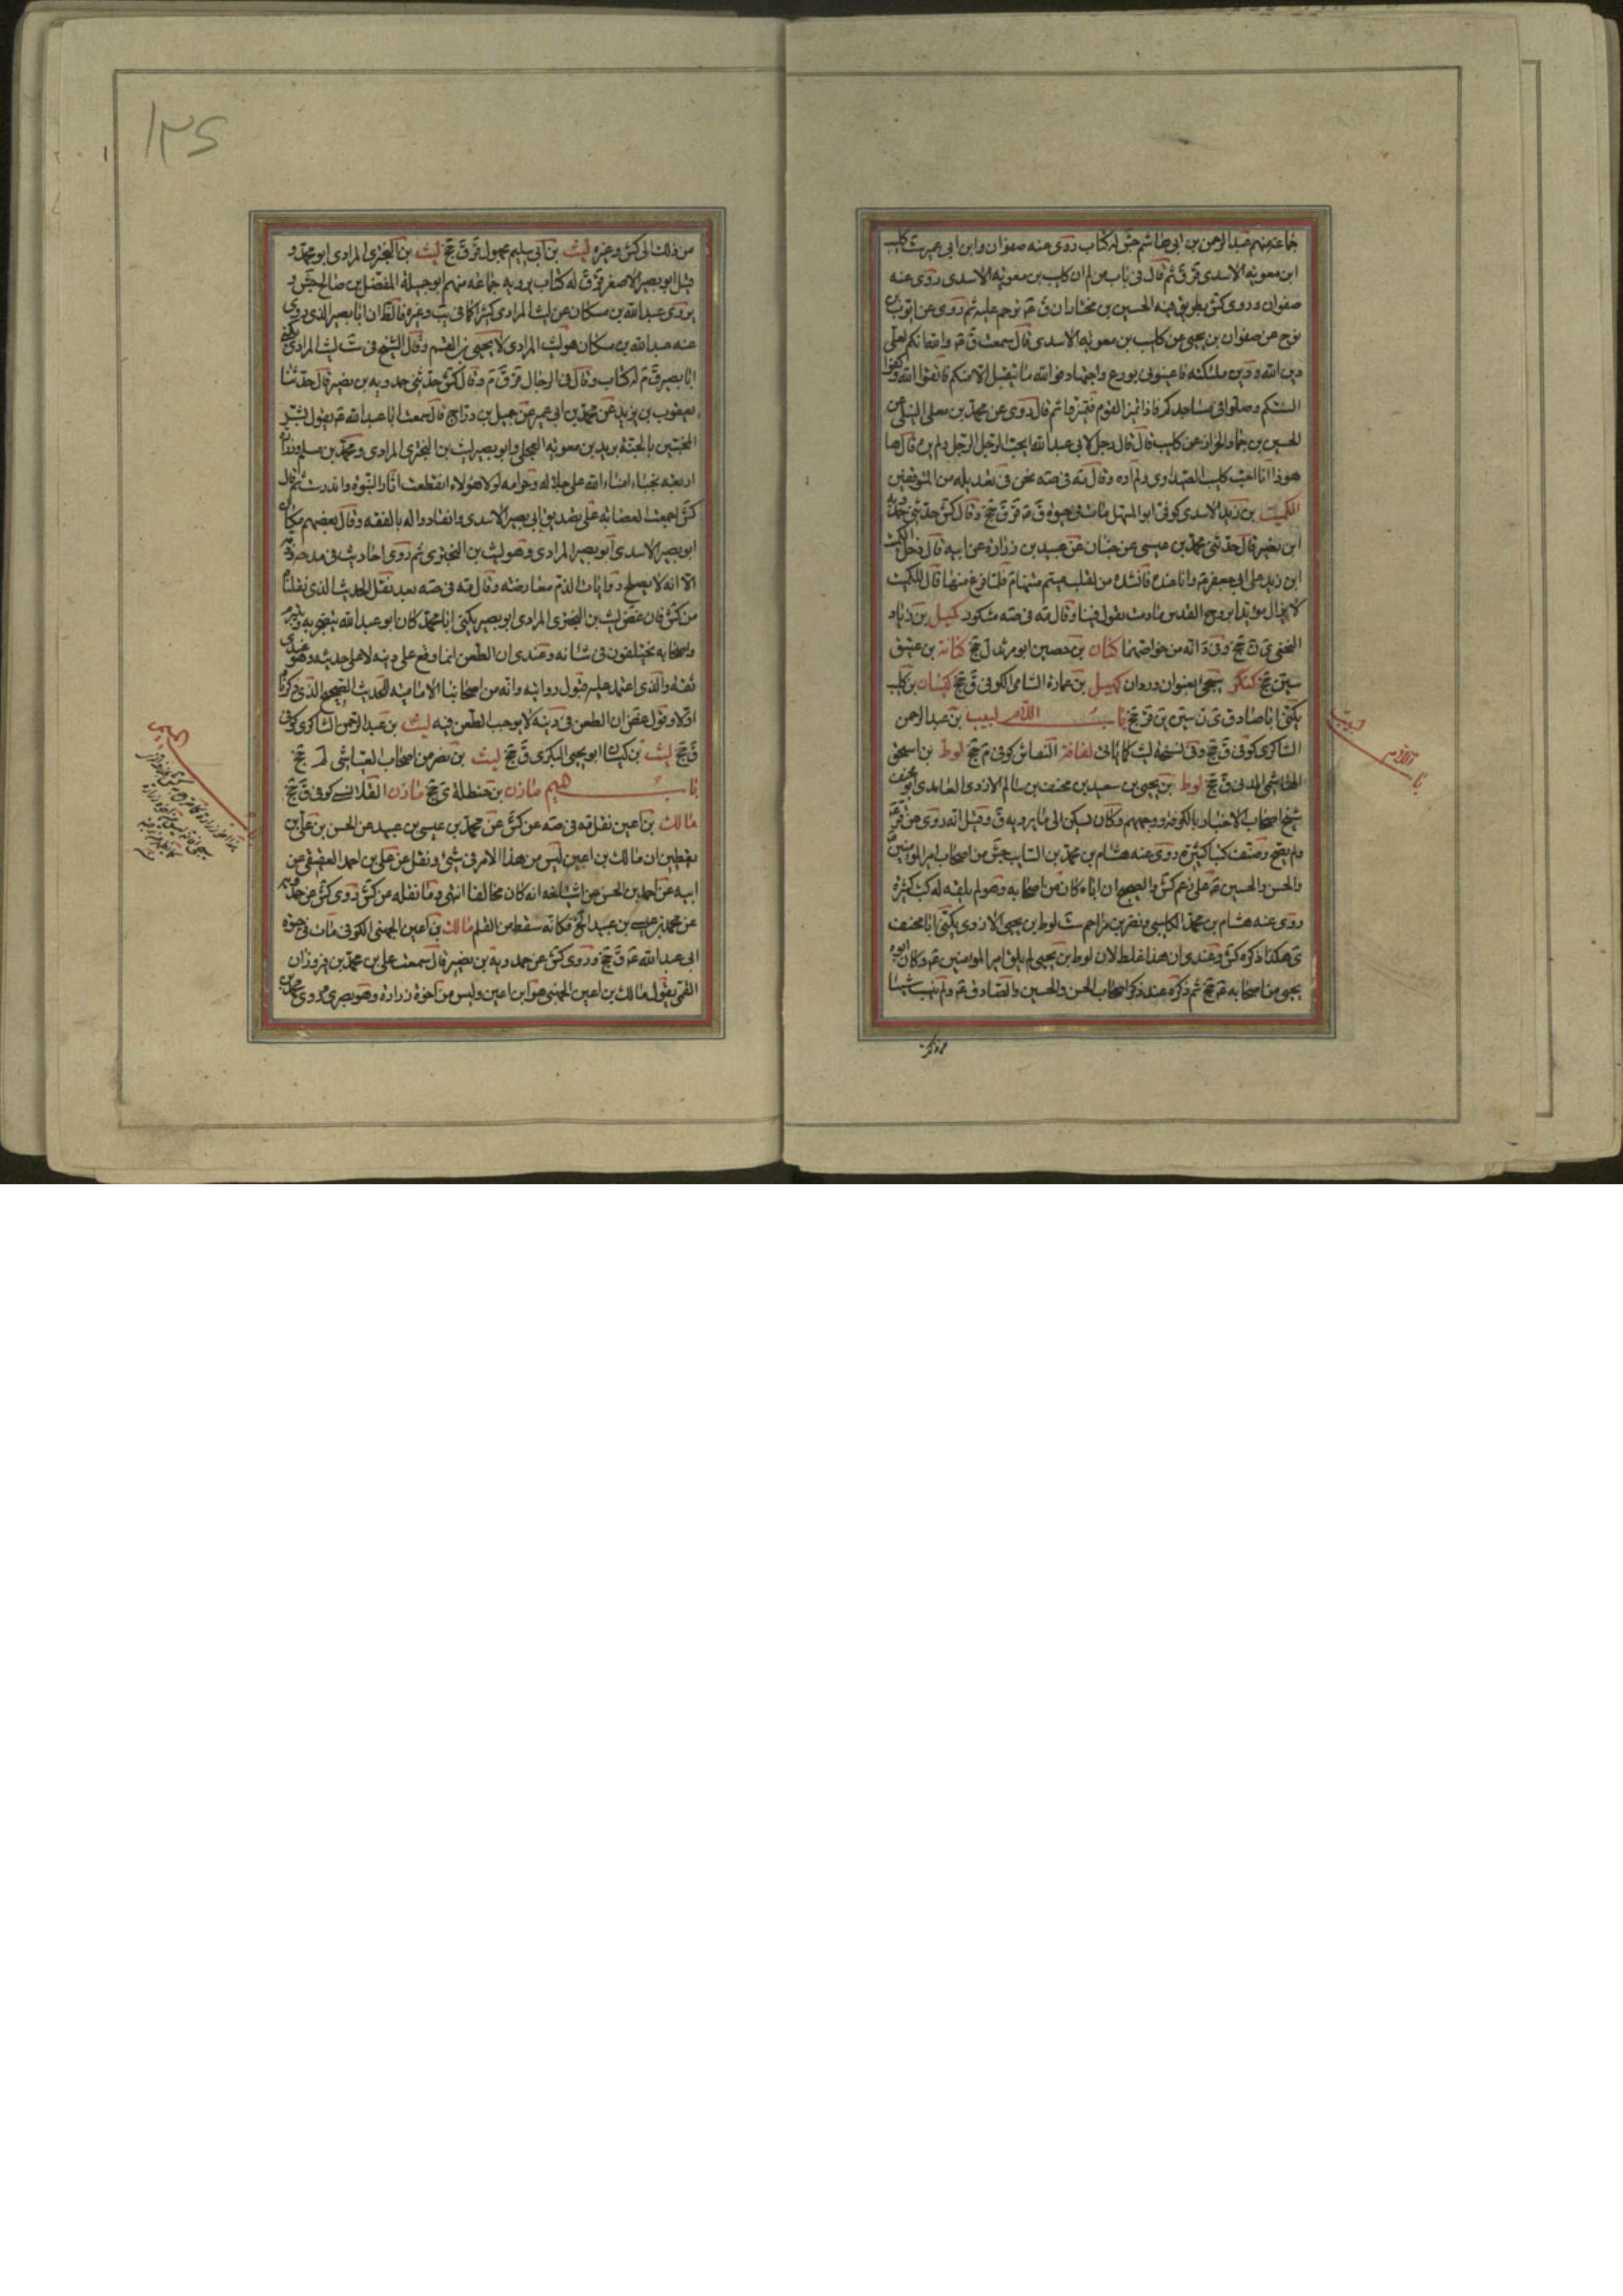 جماعة منهم عبد الرحمن بن ابی هاشم جش له کتاب روی عنه صفوان وابن ابی عمیر ست کلیب
ابن معویه الاسدی قر ق ثم قال فی باب من لم ان کلیب بن معویه الاسدی روی عنه
صفوان وروی کش بطریق فیه الحسین بن مختار ان ق عه ترحم علیه ثم روی عن ایوب بن
نوح عن صفوان بن یحیی عن کلیب بن معویه الاسدی قال سمعت ق عه والله انکم لعلی
دین الله ودین ملئکته فاعینونی بورع واجتهاد فوالله ما یتقبل الا منکم فاتقوا الله وکفوا
السنتکم وصلوا فی مساجدکم فاذا تمیز القوم فتمیزوا ثم قال روی عن محمد بن معلی النیلی عن
الحسین بن حماد الخزاز عن کلیب قال قال رجل لابی عبد الله ایحب الرجل الرجل ولم یره قال ها
هوذا انا احب کلیب الصیداوی ولم اره وقال مه فی صه نحن فی تعدیله من المتوقفین
الکمیت بن زید الاسدی کوفی ابو المستهل مات فی حیوة ق عه قر ق جخ وقال کش حدثنی حمدویه
ابن نصیر قال حدثنی محمد بن عیسی عن حنان عن عبید بن زراره عن ابیه قال دخل الکمیت
ابن زید علی ابی جعفر عه وانا عنده فانشده من لقلب متیم مستهام فلما فرغ منها قال للکمیت
لا یزال مویدا بروح القدس مادمت تقول فینا وقال مه فی صه مشکور کمیل بن زیاد
النخعی ی ن جخ وفی د انه من خواصهما کنان بن حصین ابو مرثد ل جخ کنانه بن عتیق
سین جخ کنکر یجیء بعنوان وردان کهیل بن عماره الشامی الکوفی ق جخ کیسان بن کلیب
یکنی ابا صادق ی ن سین ین قر جخ باب اللام لبیب بن عبد الرحمن
الشاکری کوفی ق جخ وفی نسخه لیث کما یاتی لفافة النقاش کوفی م جخ لوط بن اسحق
الهاشمی المدنی ق جخ لوط بن یحیی بن سعید بن مخنف بن سالم الازدی الغامدی ابو مخنف
شیخ اصحاب الاخبار بالکوفه ووجههم وکان یسکن الی ما یرویه ق وقیل انه روی عن قر عه
ولم یصح وصنف کتبا کثیرة روی عنه هشام بن محمد بن السایب جش من اصحاب امیر المومنین
والحسن والحسین عه علی زعم کش والصحیح ان اباه کان من اصحابه وهو لم یلقه له کتب کثیرة
روی عنه هشام بن محمد الکلبی ونصر بن مزاحم ست لوط بن یحیی الازدی یکنی ابا مخنف
ی هکذا ذکره کش وعندی ان هذا غلط لان لوط بن یحیی لم یلق امیر المومنین عه وکان ابوه
یحیی من اصحابه عه جخ ثم ذکره عند ذکر اصحاب الحسن والحسین والصادق عه ولم ینسب شیئا
باب اللام
لبیب
من ذلک الی کش وغیره لیث بن ابی سلیم مجهول قر ق جخ لیث بن البختری المرادی ابو محمد و
قیل ابو بصیر الاصغر قر ق له کتاب یرویه جماعه منهم ابو جمیلة المفضل بن صالح جش و
یروی عبد الله بن مسکان عن لیث المرادی کثیرا کما فی یب وغیره فالظ ان ابا بصیر الذی یروی
عنه عبد الله بن مسکان هو لیث المرادی لا یحیی بن القسم وقال الشیخ فی ست لیث المرادی یکنی
ابا بصیر ق م له کتاب وقال فی الرجال قر ق م وقال کش حدثنی حمدویه بن نصیر قال حدثنا
یعقوب بن یزید عن محمد بن ابی عمیر عن جمیل بن دراج قال سمعت ابا عبد الله عه یقول بشر
المخبتین بالجنة برید بن معویه العجلی وابو بصیر لیث بن البختری المرادی ومحمد بن مسلم وزراره
اربعه نجباء امناء الله علی حلاله وحرامه لولا هولاء انقطعت اثار النبوة واندرست ثم قال
کش اجمعت العصابه علی تصدیق ابی بصیر الاسدی وانقادوا له بالفقه وقال بعضهم مکان
ابو بصیر الاسدی ابو بصیر المرادی وهو لیث بن البختری ثم روی احادیث فی مدحه وذمه
الا انه لا یصلح روایات الذم معارضته وقال مه فی صه بعد نقل الحدیث الذی نقلناه
من کش قال غض لیث بن البختری المرادی ابو بصیر یکنی ابا محمد کان ابو عبد الله یتضجر به ویتبرم
واصحابه یختلفون فی شانه وعندی ان الطعن انما وقع علی دینه لا علی حدیثه وهو عندی
ثقه والذی اعتمد علیه قبول روایته وانه من اصحابنا الامامیه للحدیث الصحیح الذی ذکرناه
اولا وقول غض ان الطعن فی دینه لا یوجب الطعن فیه لیث بن عبد الرحمن الشاکری کوفی
ق جخ لیث بن کیسان ابو یحیی البکری ق جخ لیث بن نصر من اصحاب العیاشی لم جخ
باب المیم مازن بن حنظلة ی جخ مازن القلانسی کوفی ق جخ
مالک بن اعین نقل مه فی صه عن کش عن محمد بن عیسی بن عبید عن الحسن بن علی بن
یقطین ان مالک بن اعین لیس من هذا الامر فی شیء ونقل عن علی بن احمد العقیقی عن
ابیه عن احمد بن الحسن عن اشیاخه انه کان مخالفا انتهی وما نقله عن کش روی کش عن حمدویه
عن محمد بن عیسی بن عبید الخ فکانه سقط من القلم مالک بن اعین الجهنی الکوفی مات فی حیوة
ابی عبد الله عه ق جخ وروی کش عن حمدویه بن نصیر قال سمعت علی بن محمد بن فیروزان
القمی یقول مالک بن اعین الجهنی هو ابن اعین ولیس من اخوة زراره وهو بصری وروی محمد بن
باب المیم
۱۲۵